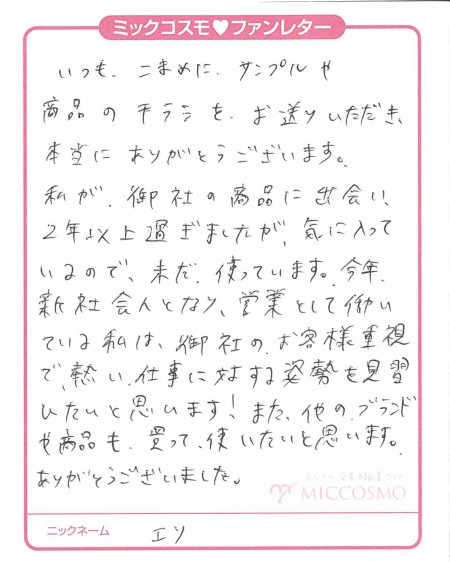 ミックコスモ♥ファンレター
いつも、こまめに、サンプルや
商品のチラシを、お送りいただき、
本当にありがとうございます。
私が、御社の商品に出会い、
2年以上過ぎましたが、気に入って
いるので、未だ、使っています。今年、
新社会人となり、営業として働い
ている私は、御社の、お客様重視
で、熱い、仕事に対する姿勢を見習
いたいと思います！また、他の、ブランド
や商品も、買って、使いたいと思います。
ありがとうございました。
MICCOSMO
ニックネーム
エリ